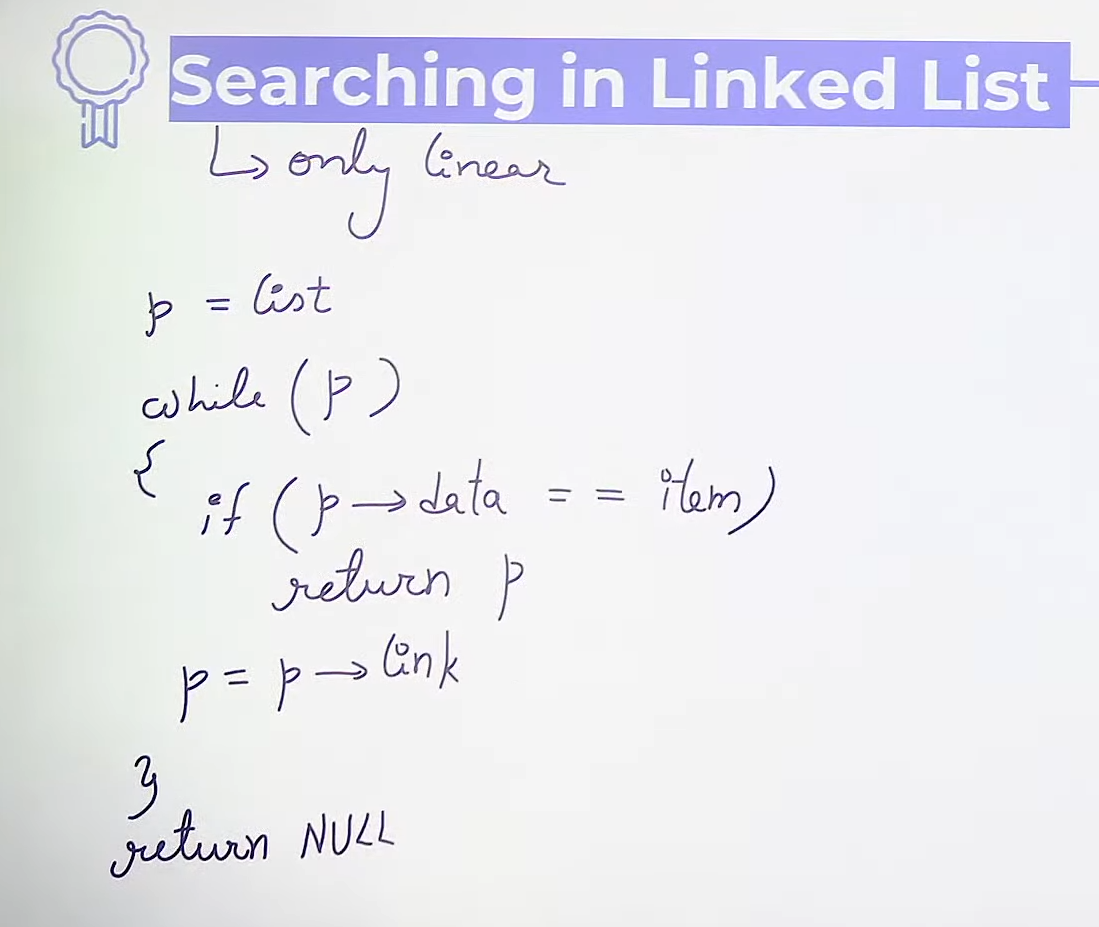 Searching in Linked List
↳ only linear
p = list
while (p)
{
if (p → data = = item)
return p
p = p → link
}
return NULL